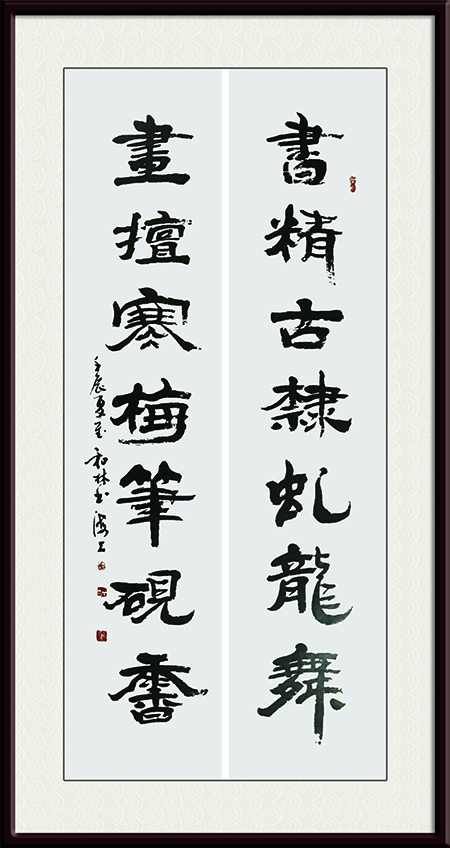 書精古隸虬龍舞
畫擅寒梅筆硯香
壬辰夏至和林书海上